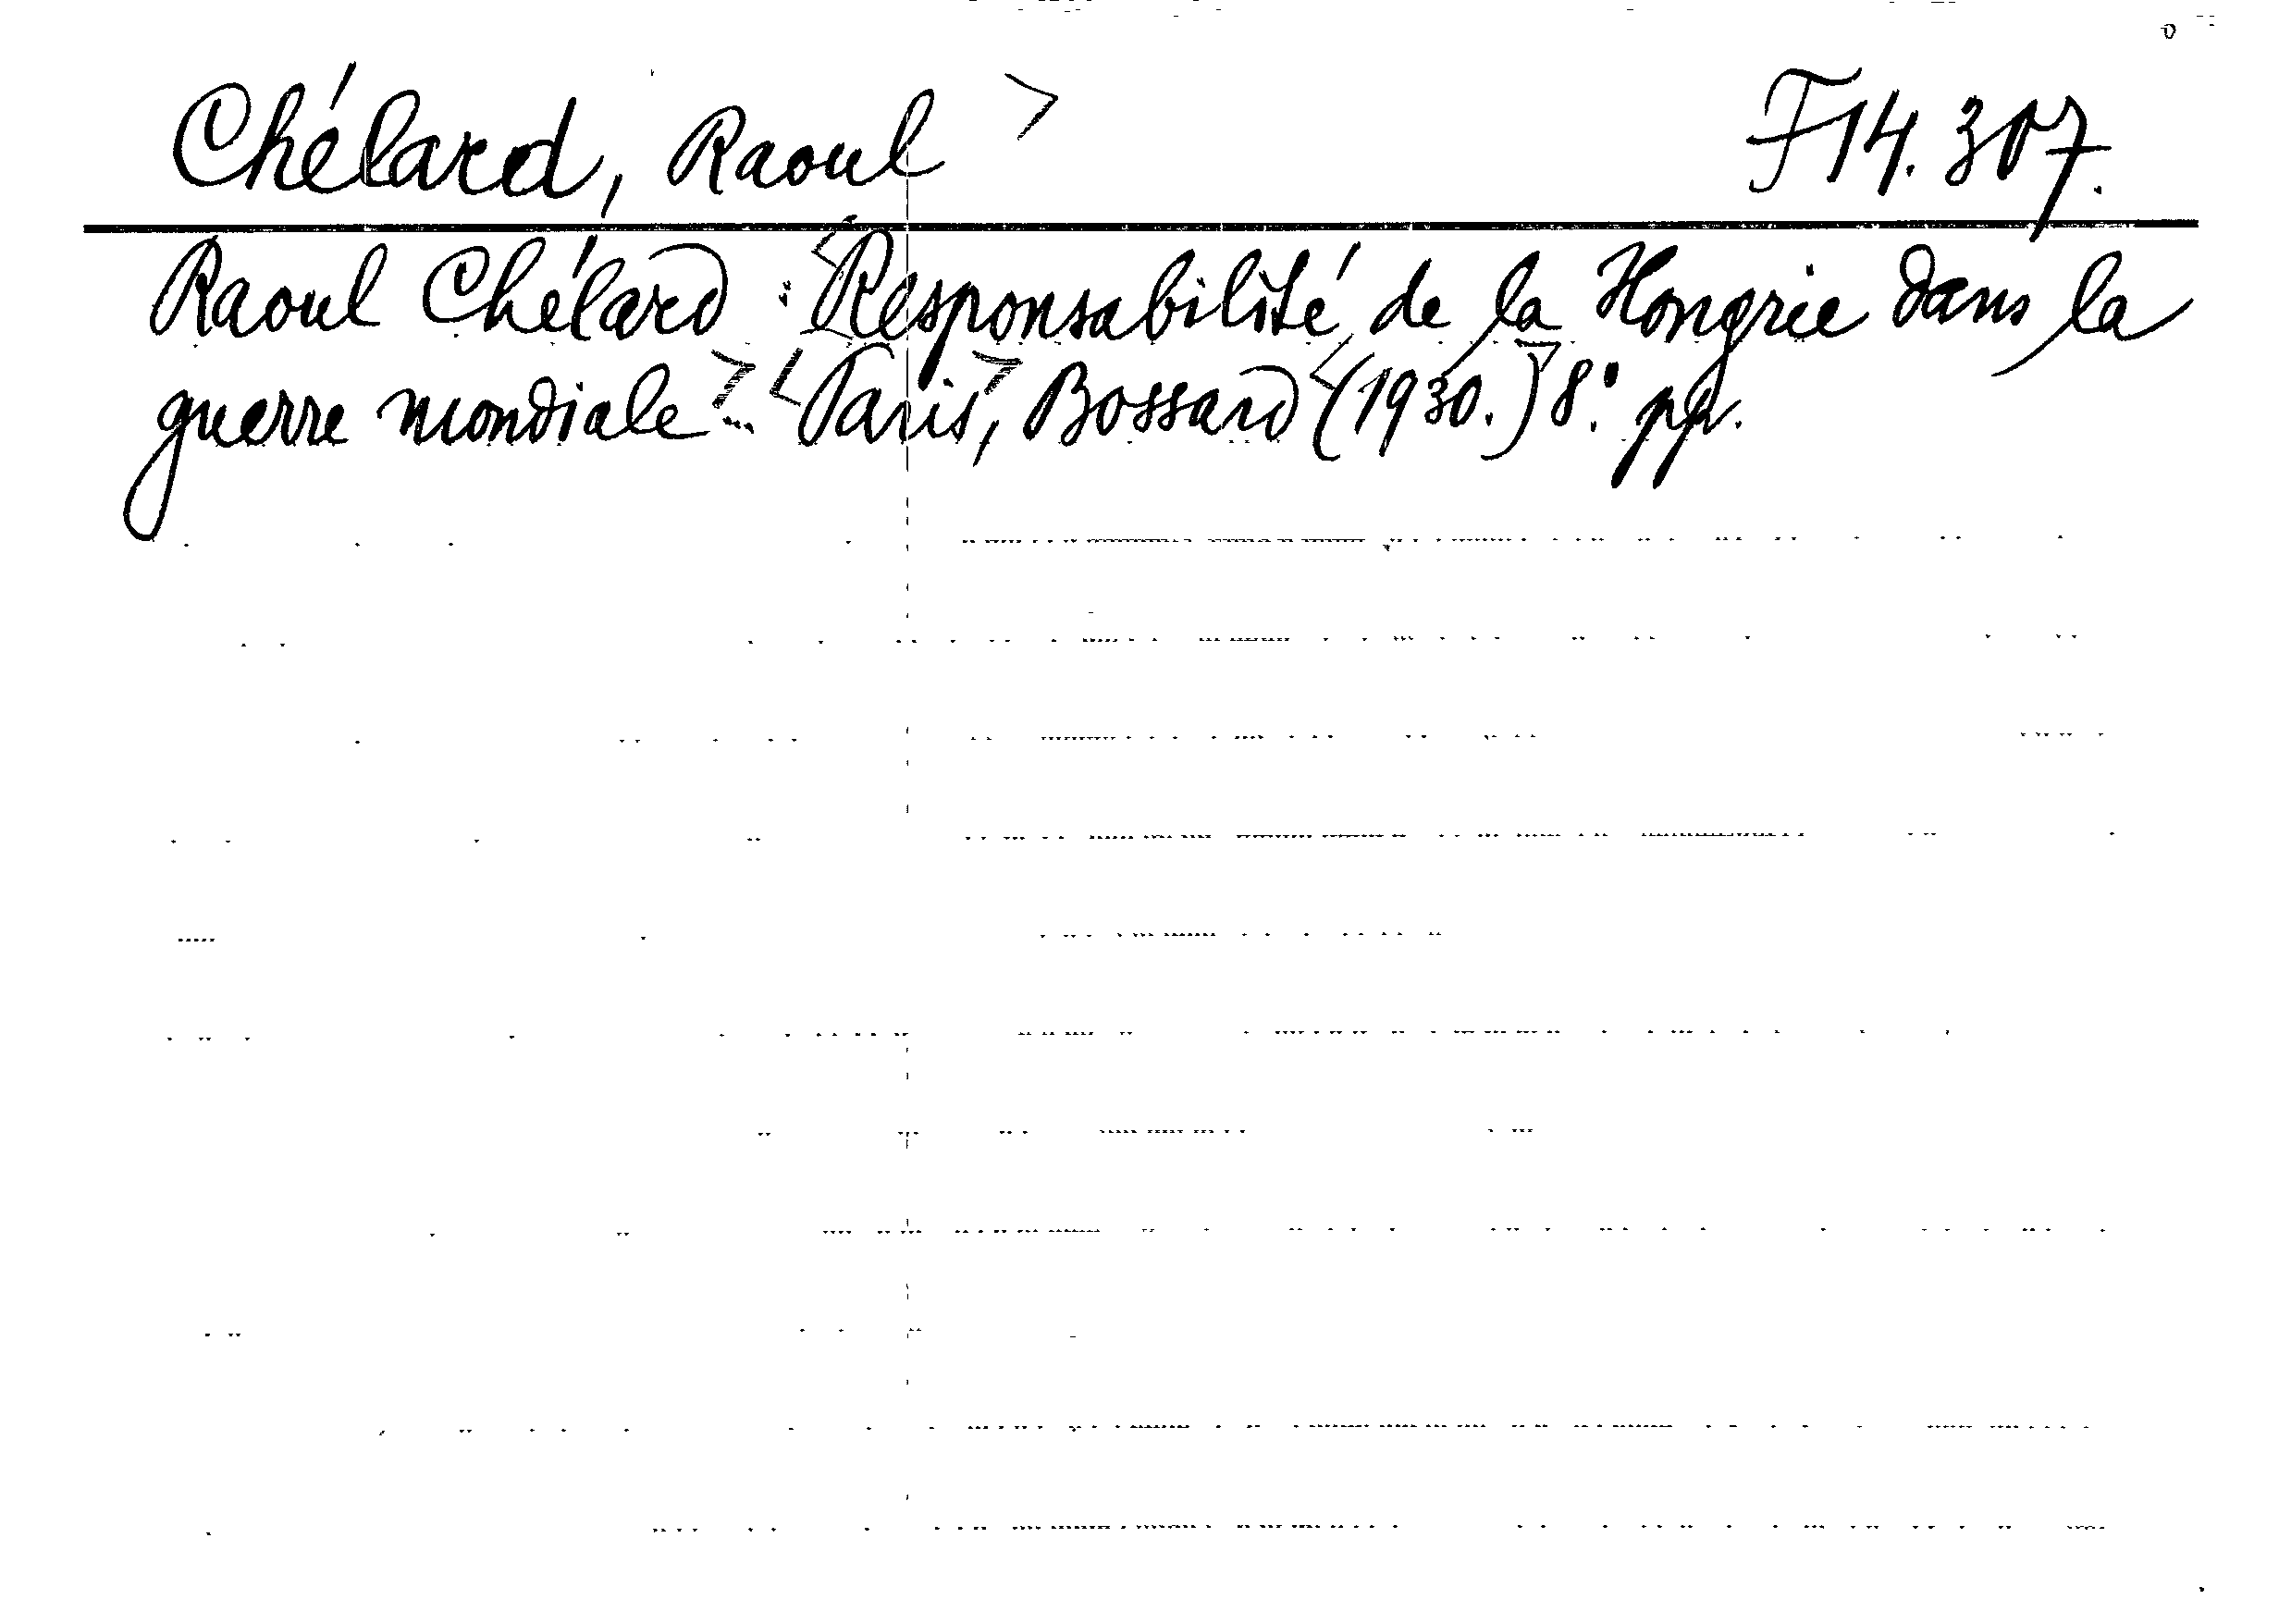 Chélard, Raoul > F14.307.
Raoul Chélard : <Responsabilité de la Hongrie dans la
guerre mondiale> <Paris>, Bossard <(1930.)> 8.º pp.